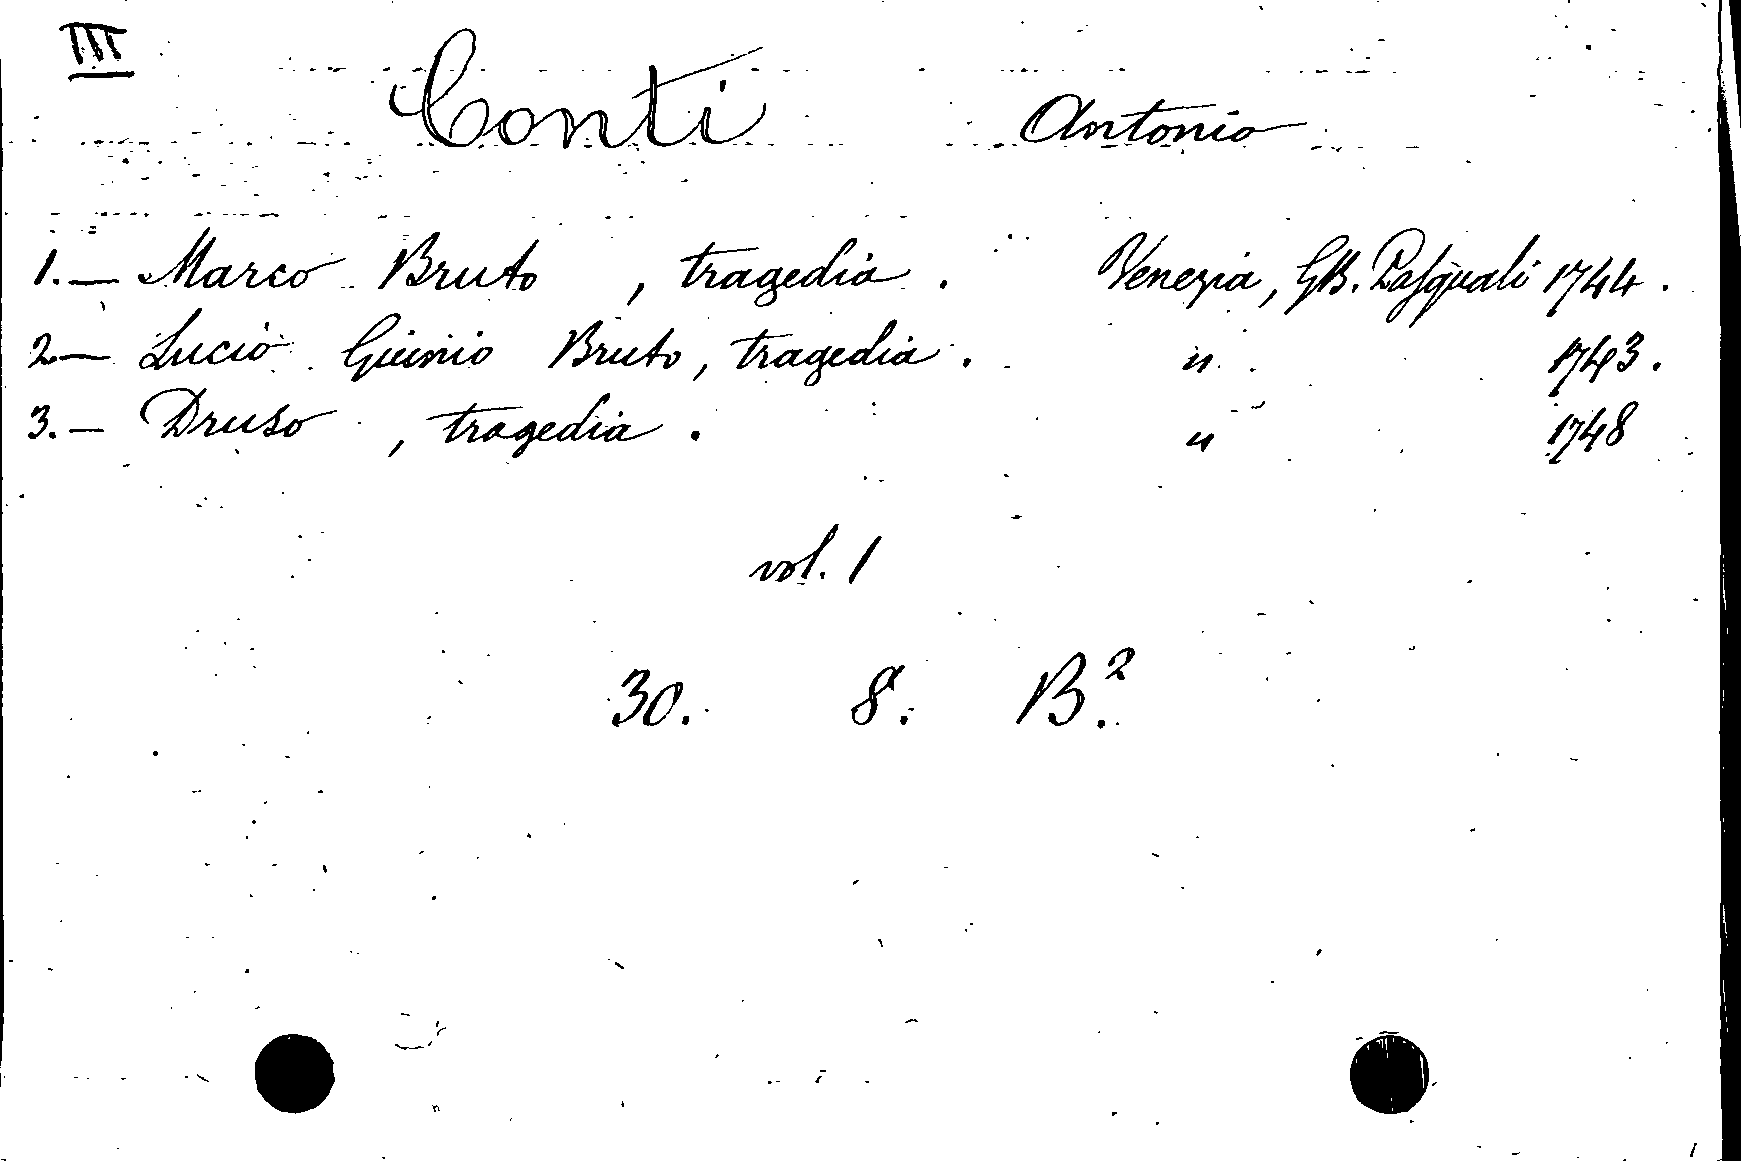 III
Conti Antonio
1.— Marco Bruto , tragedia . Venezia, GB. Pasquali 1744 .
2— Lucio Giunio Bruto, tragedia . " 1743 .
3.— Druso , tragedia . " 1748
vol. 1
30. 8. B.²